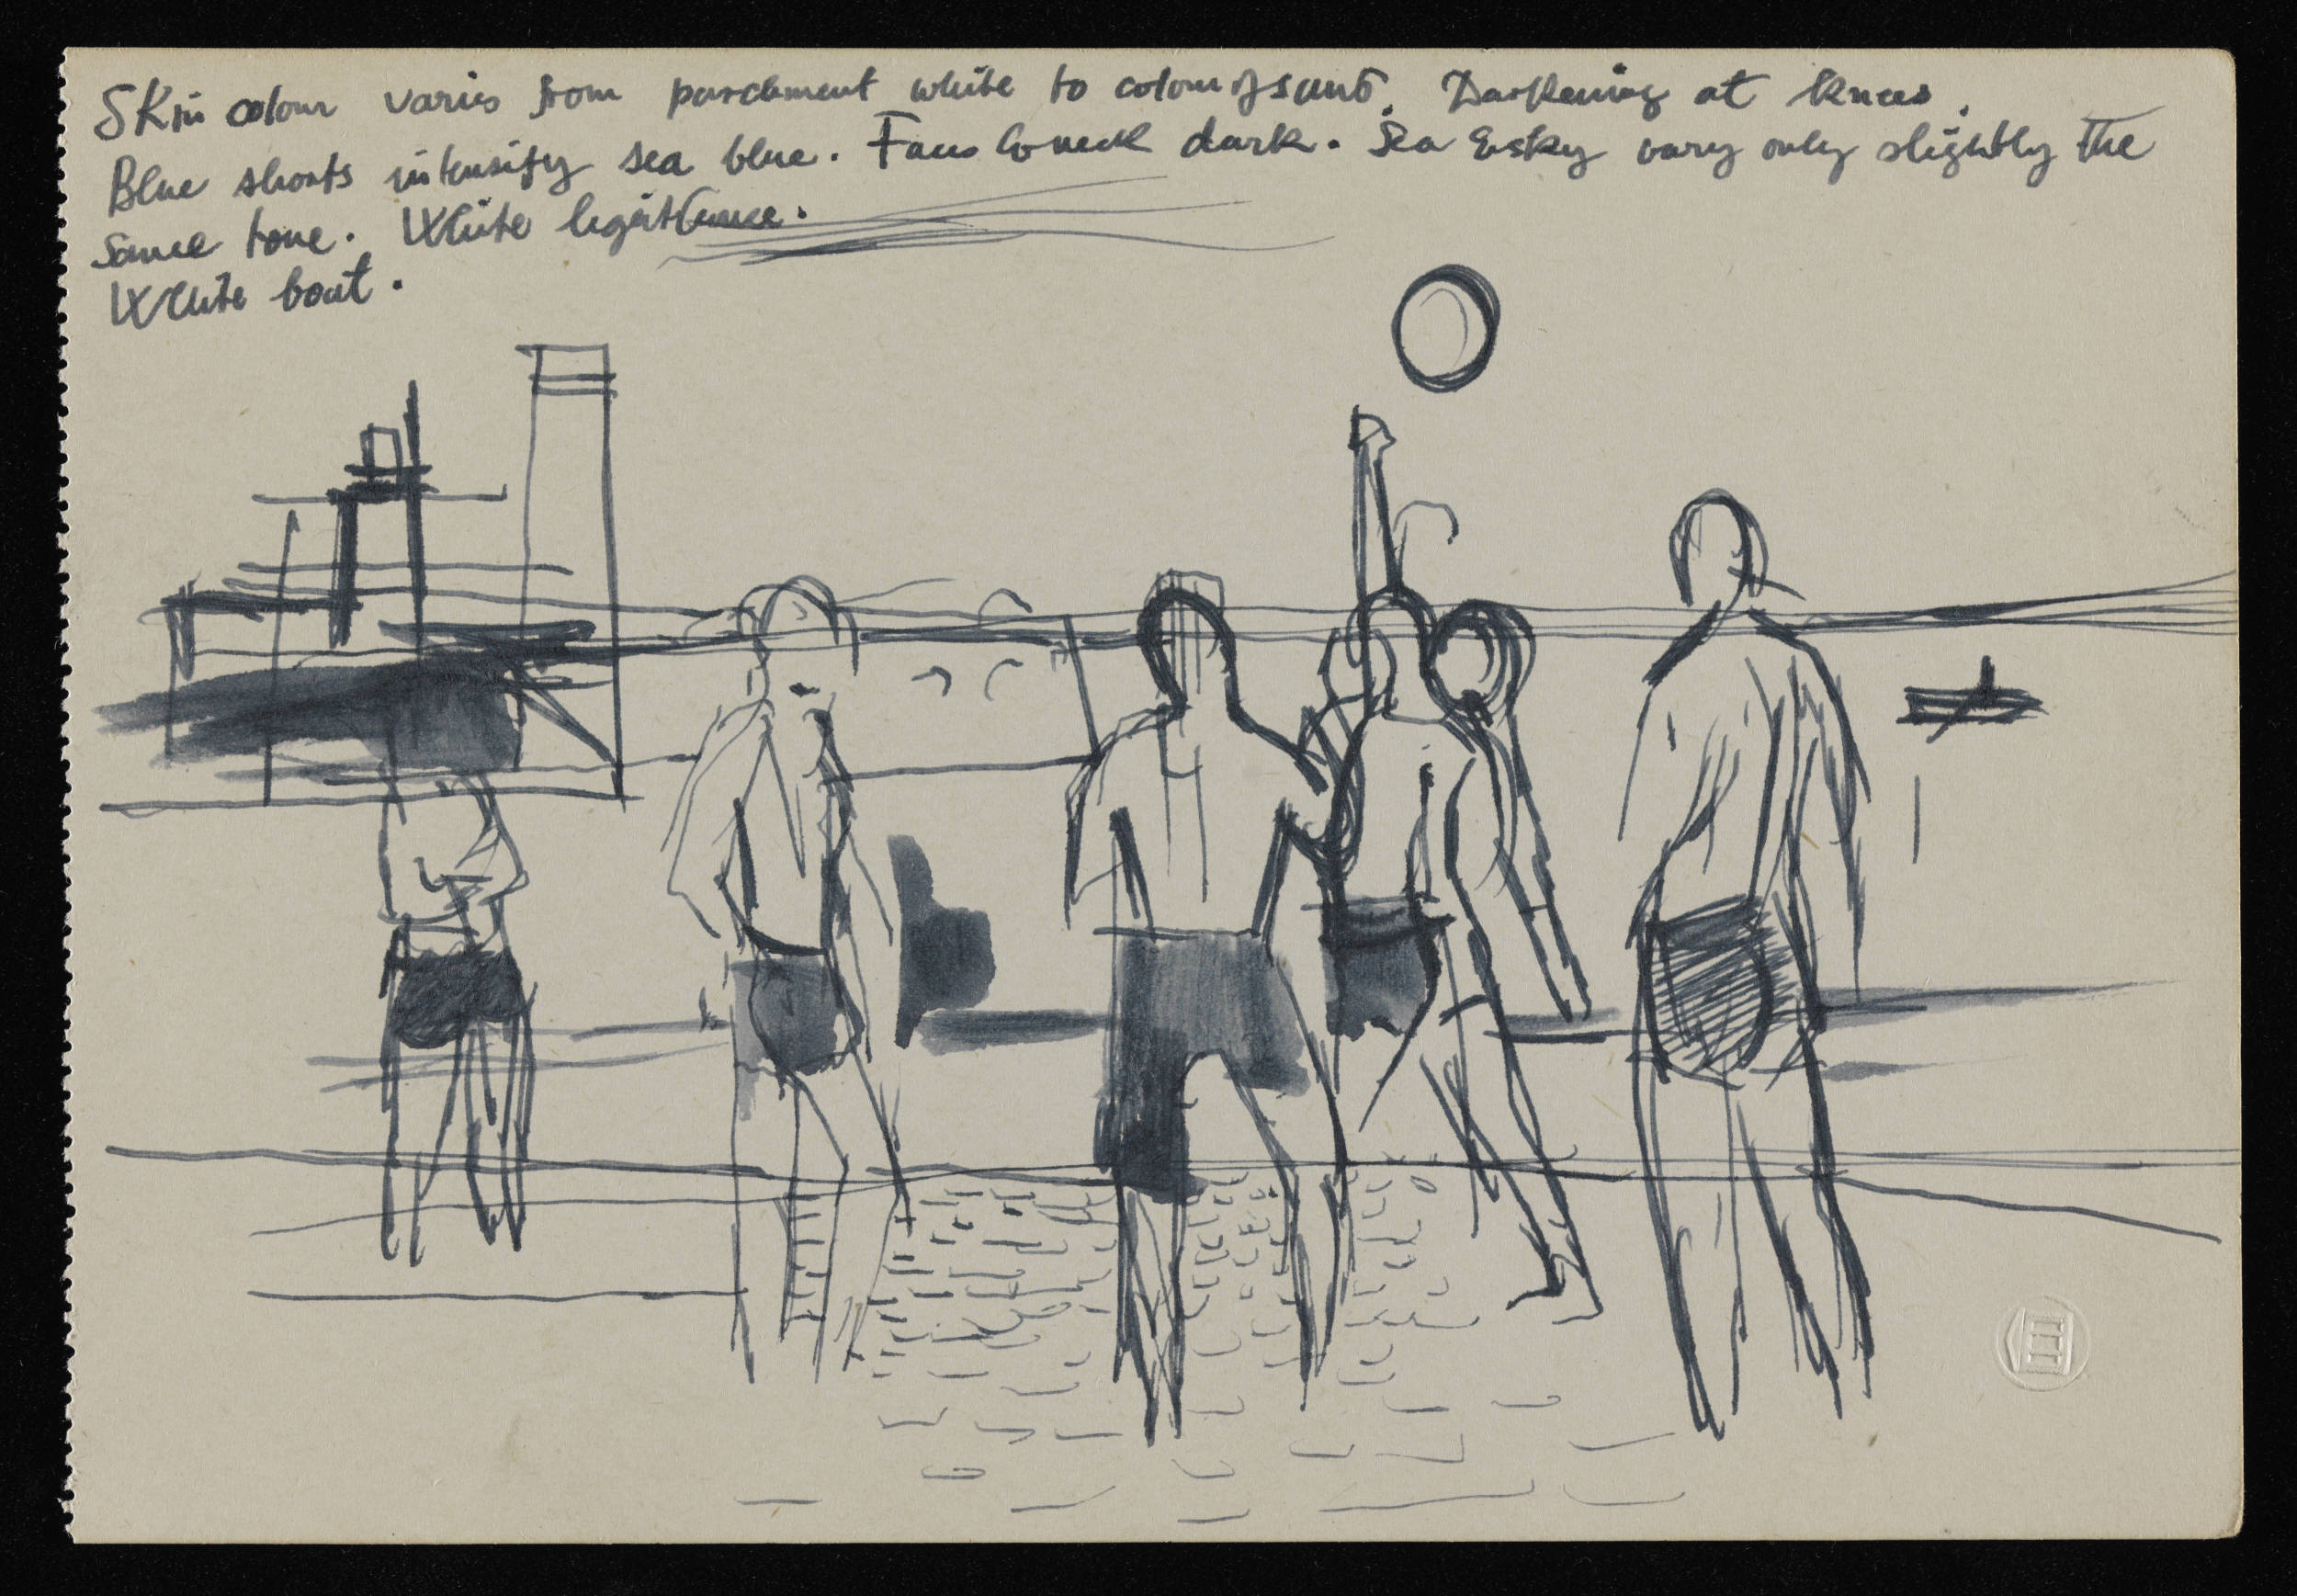 Skin colour varies from parchment white to colour of sand. Darkening at knees.
Blue shorts intensify sea blue. Faces & neck dark. Sea & sky vary only slightly the
same tone. White lighthouse.
White boat.